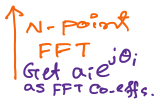 N-point
FFT
Get aᵢe^jθᵢ
as FFT co-effs.